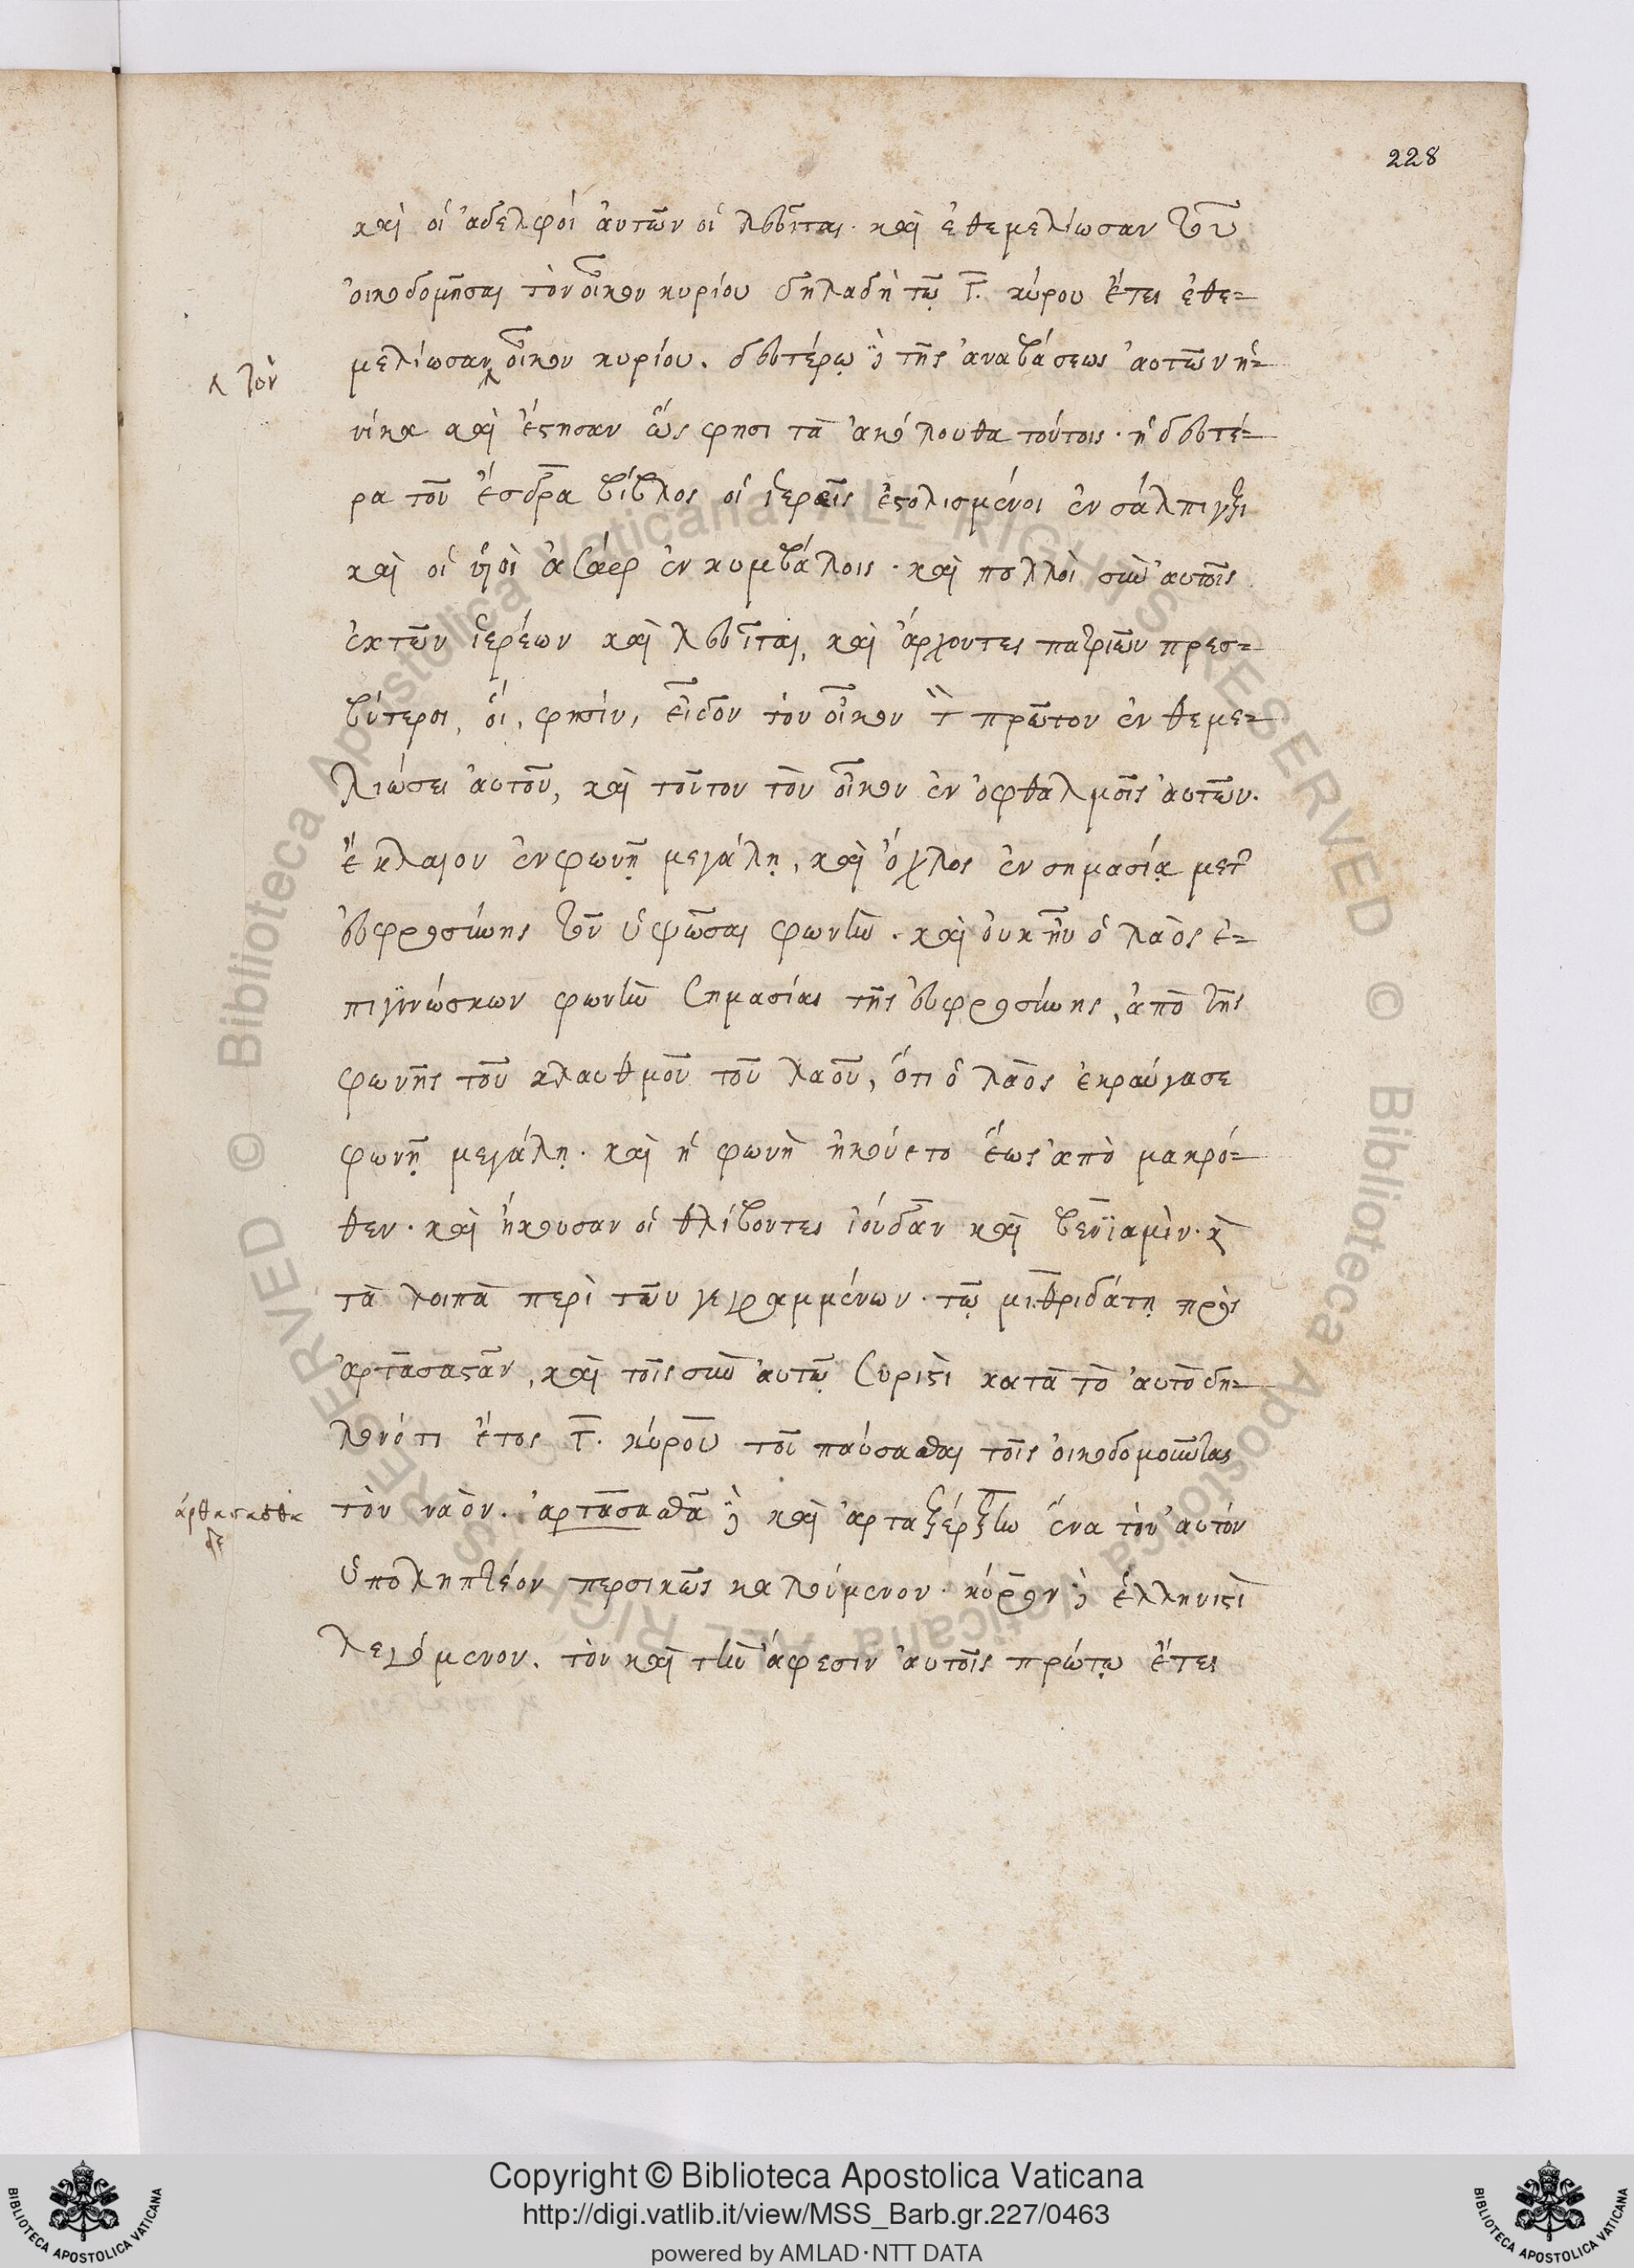 228
καὶ οἱ ἀδελφοὶ ἀυτῶν οἱ λευῖται· καὶ ἐθεμελίωσαν τοῦ
ὀικοδομῆσαι τὸν οἶκον κυρίου δηλαδὴ τῷ γ̅. κύρου ἔτει ἐθε=
μελίωσαν οἶκον κυρίου. δευτέρῳ δὲ τῆς ἀναβάσεως ἀυτῶν ἡ=
⁁ τὸν
νίκα καὶ ἔστησαν ὥς φησι τὰ ἀκόλουθα τούτοις· ἡ δευτέ=
ρα τοῦ ἔσδρα βίβλος οἱ ἱερεῖς ἐστολισμένοι ἐν σάλπιγξι
καὶ οἱ υἱοὶ ἀσάφ ἐν κυμβάλοις· καὶ πολλοὶ σὺν ἀυτοῖς
ἐκ τῶν ἱερέων καὶ λευῖται, καὶ ἄρχοντες πατριῶν πρεσ=
βύτεροι, οἵ, φησίν, εἶδον τὸν οἶκον τὸν πρῶτον ἐν θεμε=
λιώσει ἀυτοῦ, καὶ τοῦτον τὸν οἶκον ἐν ὀφθαλμοῖς ἀυτῶν.
ἔκλαιον ἐν φωνῇ μεγάλῃ, καὶ ὄχλος ἐν σημασίᾳ μετ'
ἐυφροσύνης τοῦ ὑψῶσαι φωνὴν· καὶ ὀυκ ἦν ὁ λαὸς ἐ=
πιγινώσκων φωνὴν σημασίας τῆς ἐυφροσύνης, ἀπὸ τῆς
φωνῆς τοῦ κλαυθμοῦ τοῦ λαοῦ, ὅτι ὁ λαὸς ἐκραύγασε
φωνῇ μεγάλῃ· καὶ ἡ φωνὴ ἠκούετο ἕως ἀπὸ μακρό=
θεν· καὶ ἤκουσαν οἱ θλίβοντες ἰούδαν καὶ βενϊαμὶν· κὶ
τὰ λοιπὰ περὶ τῶν γεγραμμένων· τῷ μιθριδάτῃ πρὸς
ἀρτασαστὰν, καὶ τοῖς σὺν ἀυτῷ συριστὶ κατὰ τὸ ἀυτὸ δη=
λονότι ἔτος γ̅. κύρου τοῦ παύσασθαι τοῖς ὀικοδομοῦντας
τὸν ναὸν. ἀρτασασθὰ δὲ καὶ ἀρταξέρξην ἕνα τὸν ἀυτόν
ἀρθασασθὰ
δὲ
ὑποληπτέον περσικῶς καλούμενον· κύρον δὲ ἑλληνιστὶ
λεγόμενον. τὸν καὶ τὴν ἄφεσιν ἀυτοῖς πρώτῳ ἔτει
Copyright © Biblioteca Apostolica Vaticana
http://digi.vatlib.it/view/MSS_Barb.gr.227/0463
powered by AMLAD·NTT DATA
BIBLIOTECA APOSTOLICA VATICANA
BIBLIOTECA APOSTOLICA VATICANA
© Biblioteca Apostolica Vaticana ALL RIGHTS RESERVED
© Biblioteca Apostolica Vaticana ALL RIGHTS RESERVED